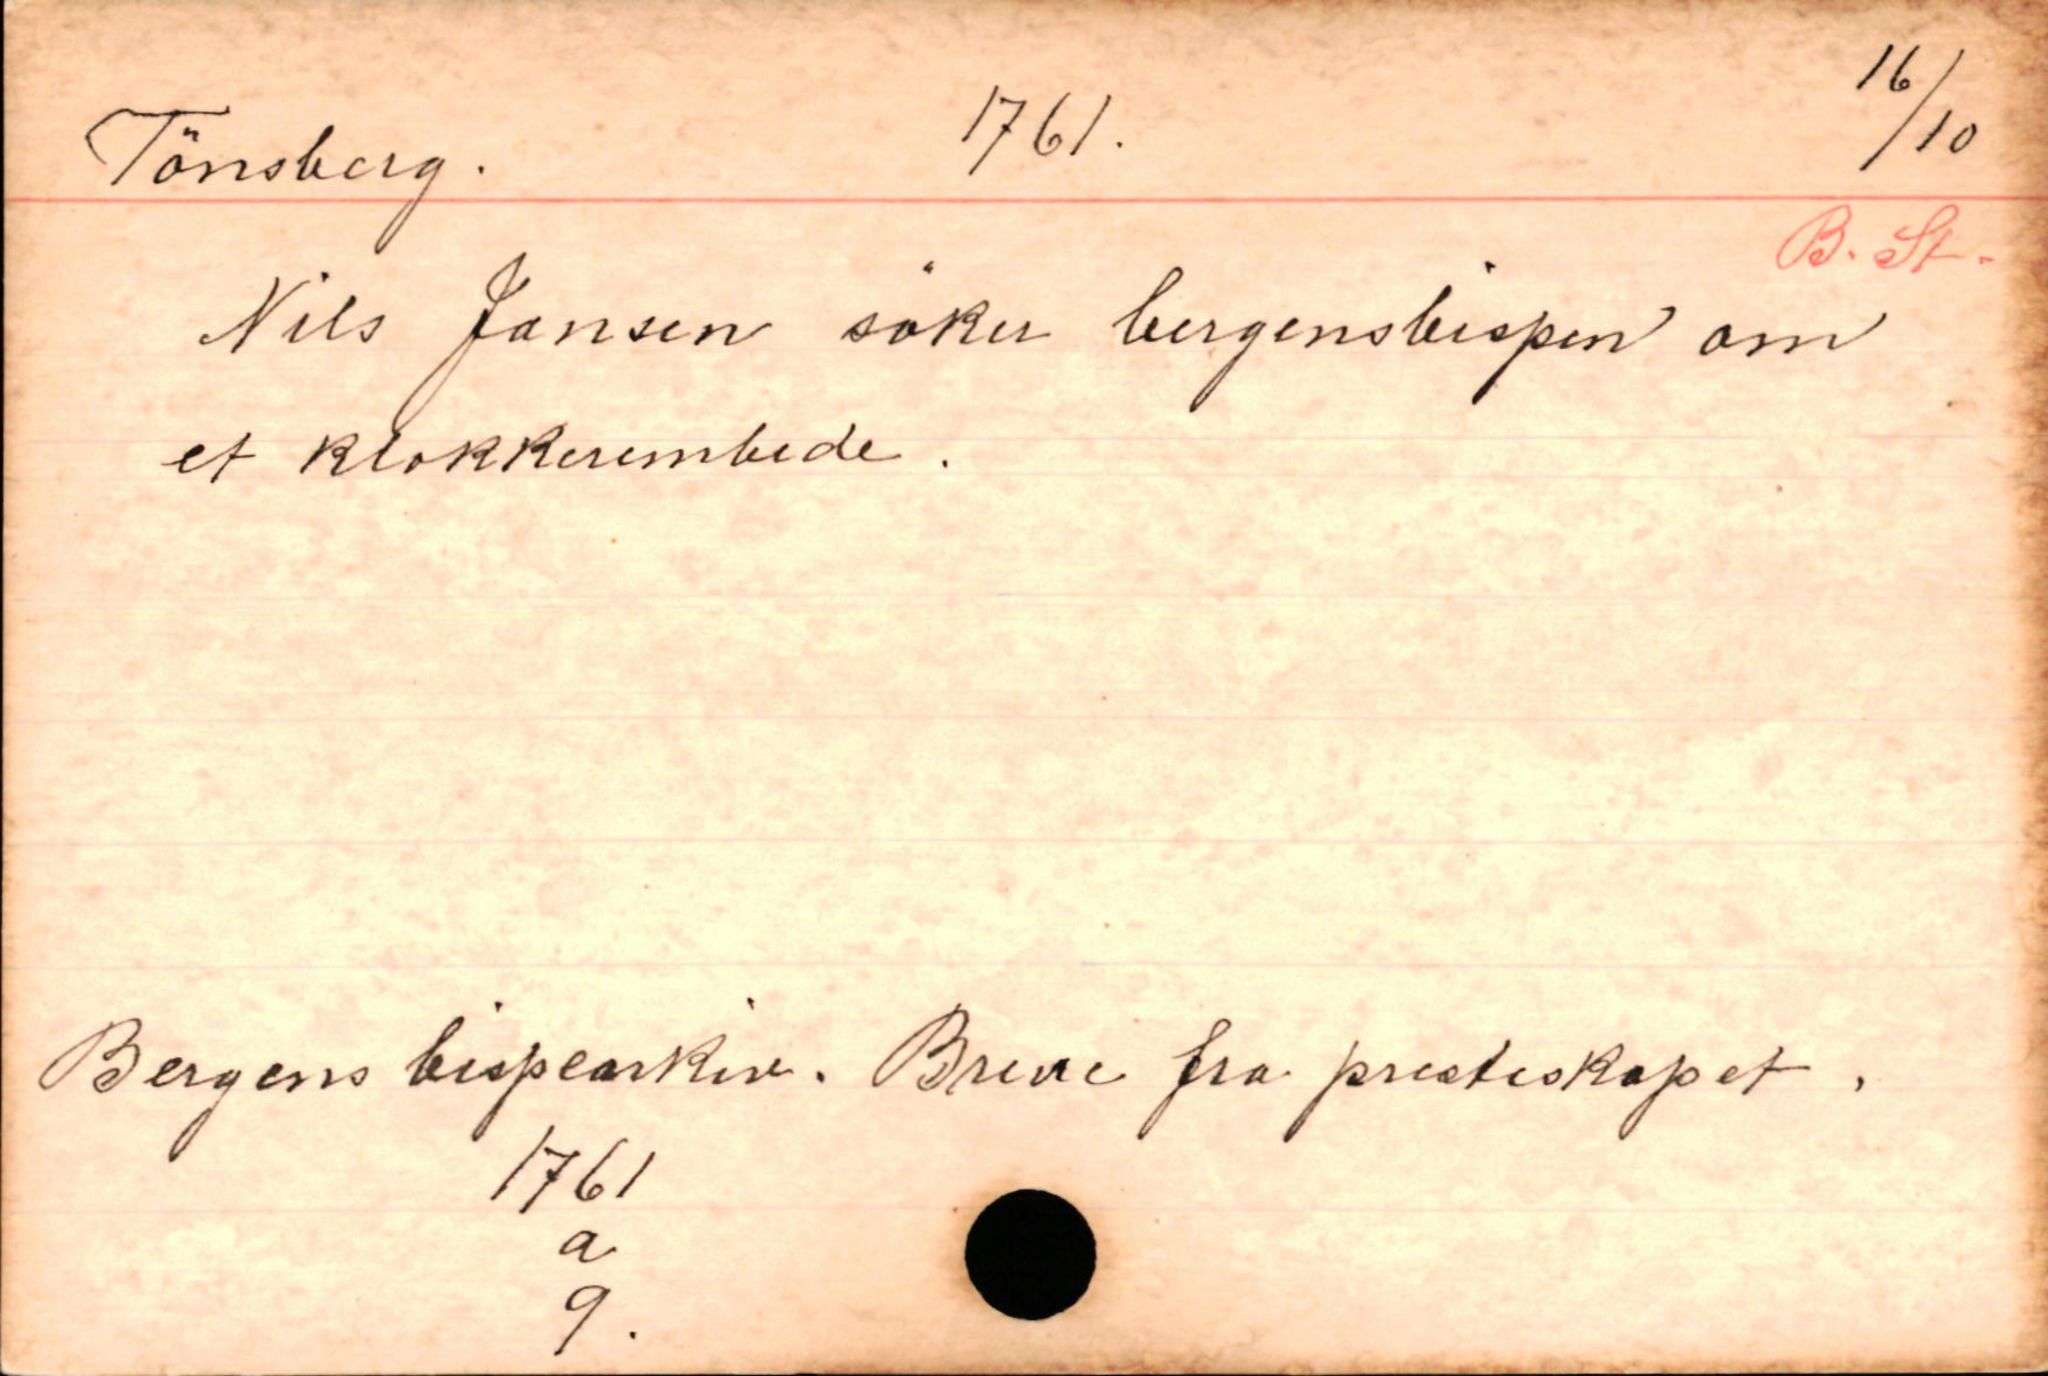 Tönsberg. 1761. 16/10
B. St.
Nils Jansen söker bergensbispen om
et klokkerembede.
Bergens bispearkiv. Breve fra presteskapet.
1761
a
9.